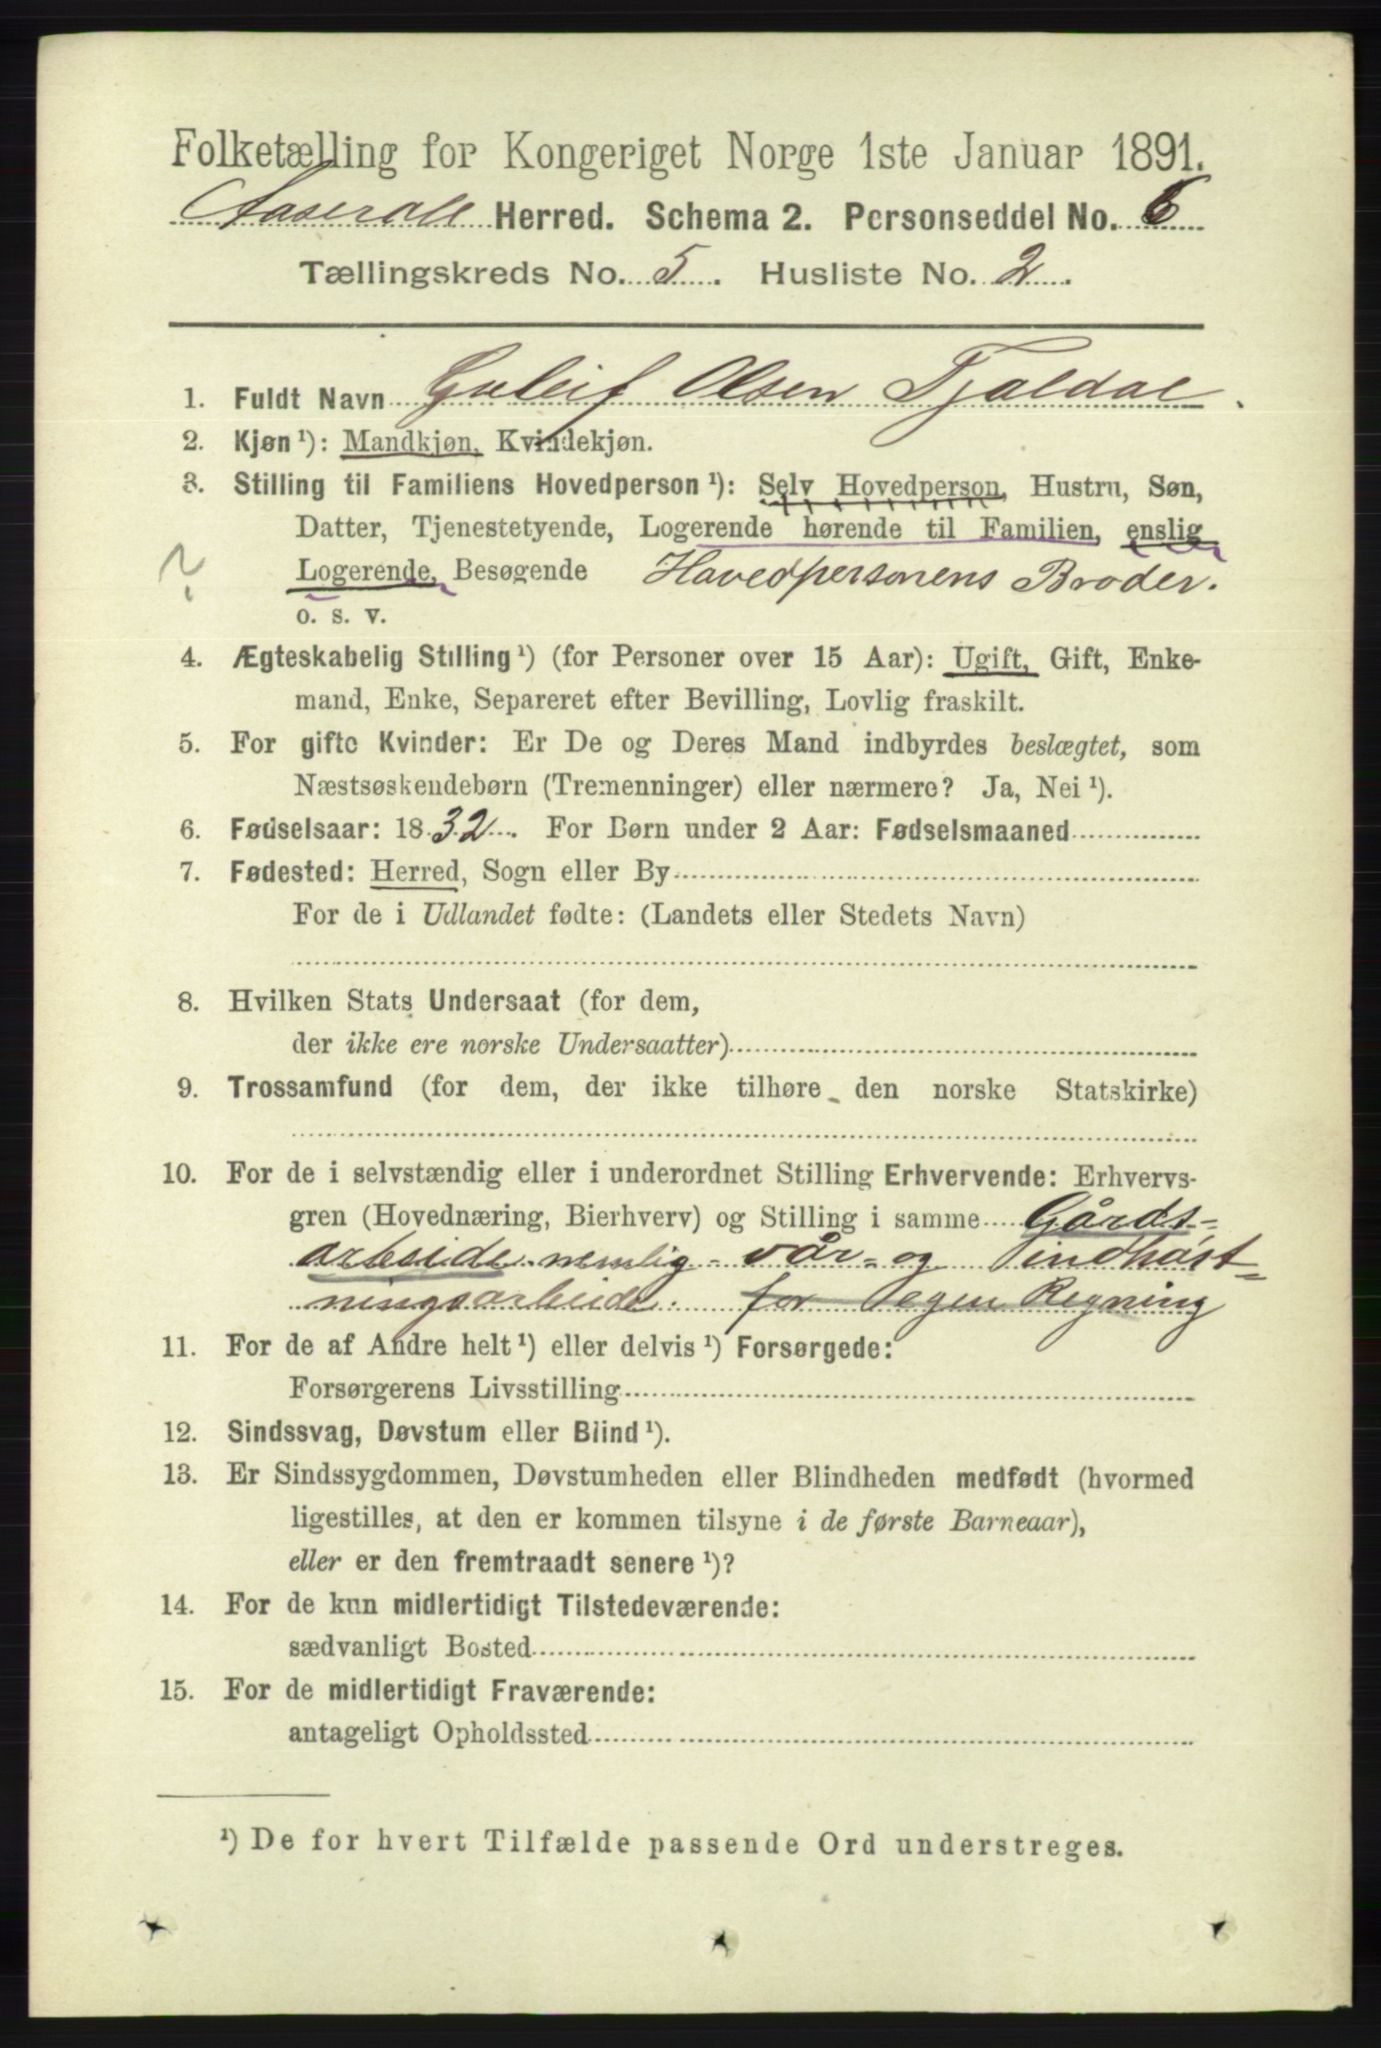 Folketælling for Kongeriget Norge 1ste Januar 1891.
Aaserall Herred. Schema 2. Personseddel No. 6
Tællingskreds No. 5. Husliste No. 2.
1. Fuldt Navn Guleif Olsen Fjaldal.
2. Kjøn ¹): Mandkjøn, Kvindekjøn.
3. Stilling til Familiens Hovedperson ¹): Selv Hovedperson, Hustru, Søn,
Datter, Tjenestetyende, Logerende hørende til Familien, enslig
? Logerende, Besøgende Hovedpersonens Broder.
o. s. v.
4. Ægteskabelig Stilling ¹) (for Personer over 15 Aar): Ugift, Gift, Enke-
mand, Enke, Separeret efter Bevilling, Lovlig fraskilt.
5. For gifte Kvinder: Er De og Deres Mand indbyrdes beslægtet, som
Næstsøskendebørn (Tremenninger) eller nærmere? Ja, Nei ¹).
6. Fødselsaar: 1832. For Børn under 2 Aar: Fødselsmaaned
7. Fødested: Herred, Sogn eller By
For de i Udlandet fødte: (Landets eller Stedets Navn)
8. Hvilken Stats Undersaat (for dem,
der ikke ere norske Undersaatter)
9. Trossamfund (for dem, der ikke tilhøre den norske Statskirke)
10. For de i selvstændig eller i underordnet Stilling Erhvervende: Erhvervs-
gren (Hovednæring, Bierhverv) og Stilling i samme Gårds-
arbeide nemlig vår- og indhøst-
ningsarbeide. for egen Regning
11. For de af Andre helt ¹) eller delvis ¹) Forsørgede:
Forsørgerens Livsstilling
12. Sindssvag, Døvstum eller Blind ¹).
13. Er Sindssygdommen, Døvstumheden eller Blindheden medfødt (hvormed
ligestilles, at den er kommen tilsyne i de første Barneaar),
eller er den fremtraadt senere ¹)?
14. For de kun midlertidigt Tilstedeværende:
sædvanligt Bosted
15. For de midlertidigt Fraværende:
antageligt Opholdssted
¹) De for hvert Tilfælde passende Ord understreges.